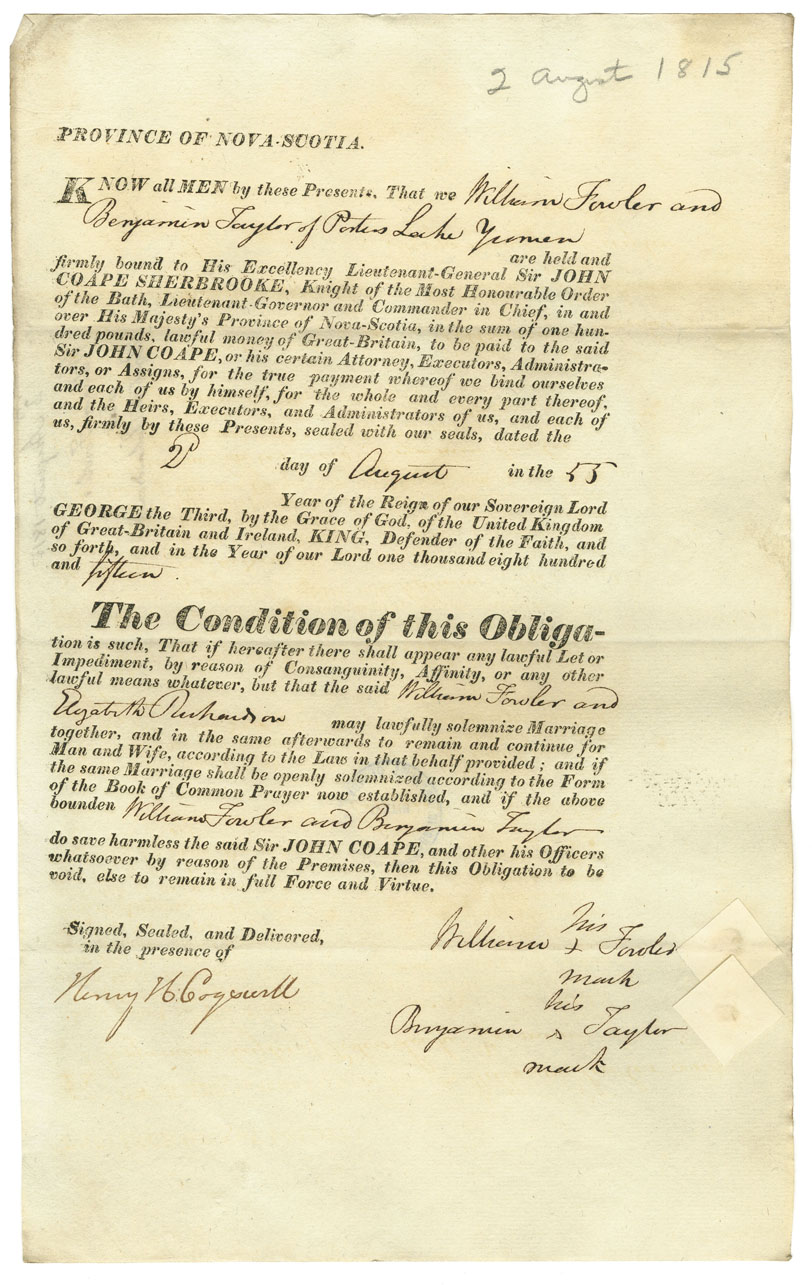 2 august 1815
PROVINCE OF NOVA-SCOTIA.
KNOW all MEN by these Presents, That we William Fowler and
Benjamin Taylor of Porters Lake Yumen
are held and
firmly bound to His Excellency Lieutenant-General Sir JOHN
COAPE SHERBROOKE, Knight of the Most Honourable Order
of the Bath, Lieutenant-Governor and Commander in Chief, in and
over His Majesty's Province of Nova-Scotia, in the sum of one hun-
dred pounds, lawful money of Great-Britain, to be paid to the said
Sir JOHN COAPE, or his certain Attorney, Executors, Administra-
tors, or Assigns, for the true payment whereof we bind ourselves
and each of us by himself, for the whole and every part thereof,
and the Heirs, Executors, and Administrators of us, and each of
us, firmly by these Presents, sealed with our seals, dated the
2d day of August in the 55
Year of the Reign of our Sovereign Lord
GEORGE the Third, by the Grace of God, of the United Kingdom
of Great-Britain and Ireland, KING, Defender of the Faith, and
so forth, and in the Year of our Lord one thousand eight hundred
and fifteen.
The Condition of this Obliga-
tion is such, That if hereafter there shall appear any lawful Let or
Impediment, by reason of Consanguinity, Affinity, or any other
lawful means whatever, but that the said William Fowler and
Elizabeth Richardson may lawfully solemnize Marriage
together, and in the same afterwards to remain and continue for
Man and Wife, according to the Law in that behalf provided; and if
the same Marriage shall be openly solemnized according to the Form
of the Book of Common Prayer now established, and if the above
bounden William Fowler and Benjamin Taylor
do save harmless the said Sir JOHN COAPE, and other his Officers
whatsoever by reason of the Premises, then this Obligation to be
void, else to remain in full Force and Virtue.
Signed, Sealed, and Delivered,
in the presence of
Henry H Cogswell
his
William + Fowler
mark
his
Benjamin x Taylor
mark